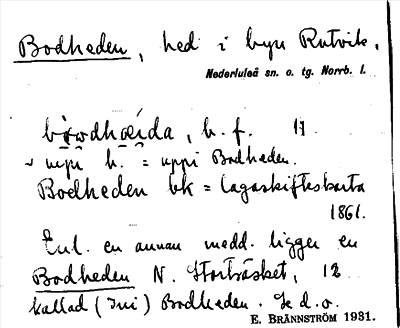 Bodheden, hed i byn Rutvik.
Nederluleå sn. o. tg. Norrb. l.
b. f. 11
uppi h. = uppi Bodheden.
Bodheden bk = Lagaskifteskarta
1861.
Enl. en annan medd. ligger en
Bodheden N. Storträsket, 12
kallad (Inri) Bodheden. Se d. o.
E. BRÄNNSTRÖM 1931.